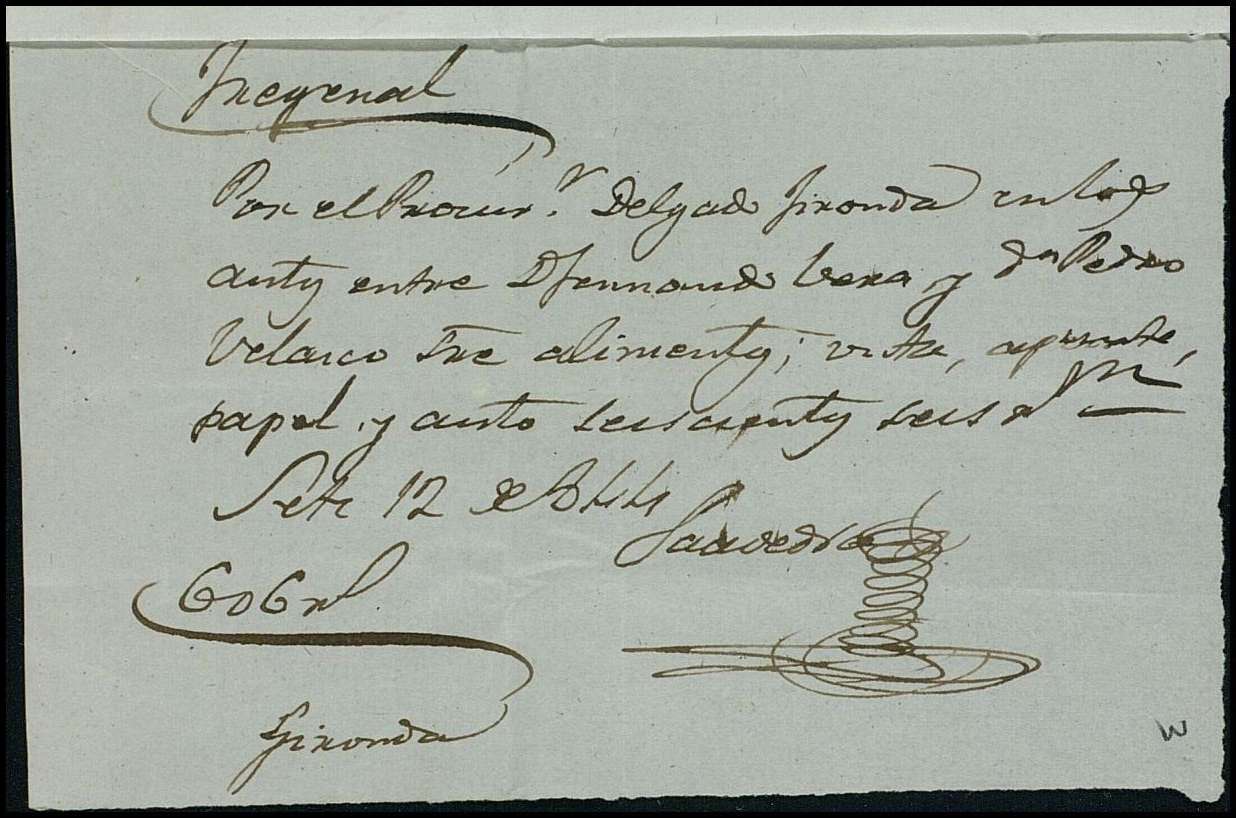 Fregenal
Por el Procur.r Delgado Jironda en los
autos entre D Fernando Vera y Dn Pedro
Velasco sre alimentos; vista, apunte,
papel y auto seiscientos seis rl vn
Sete 12 de 844
Saavedra
606 rl
Gironda